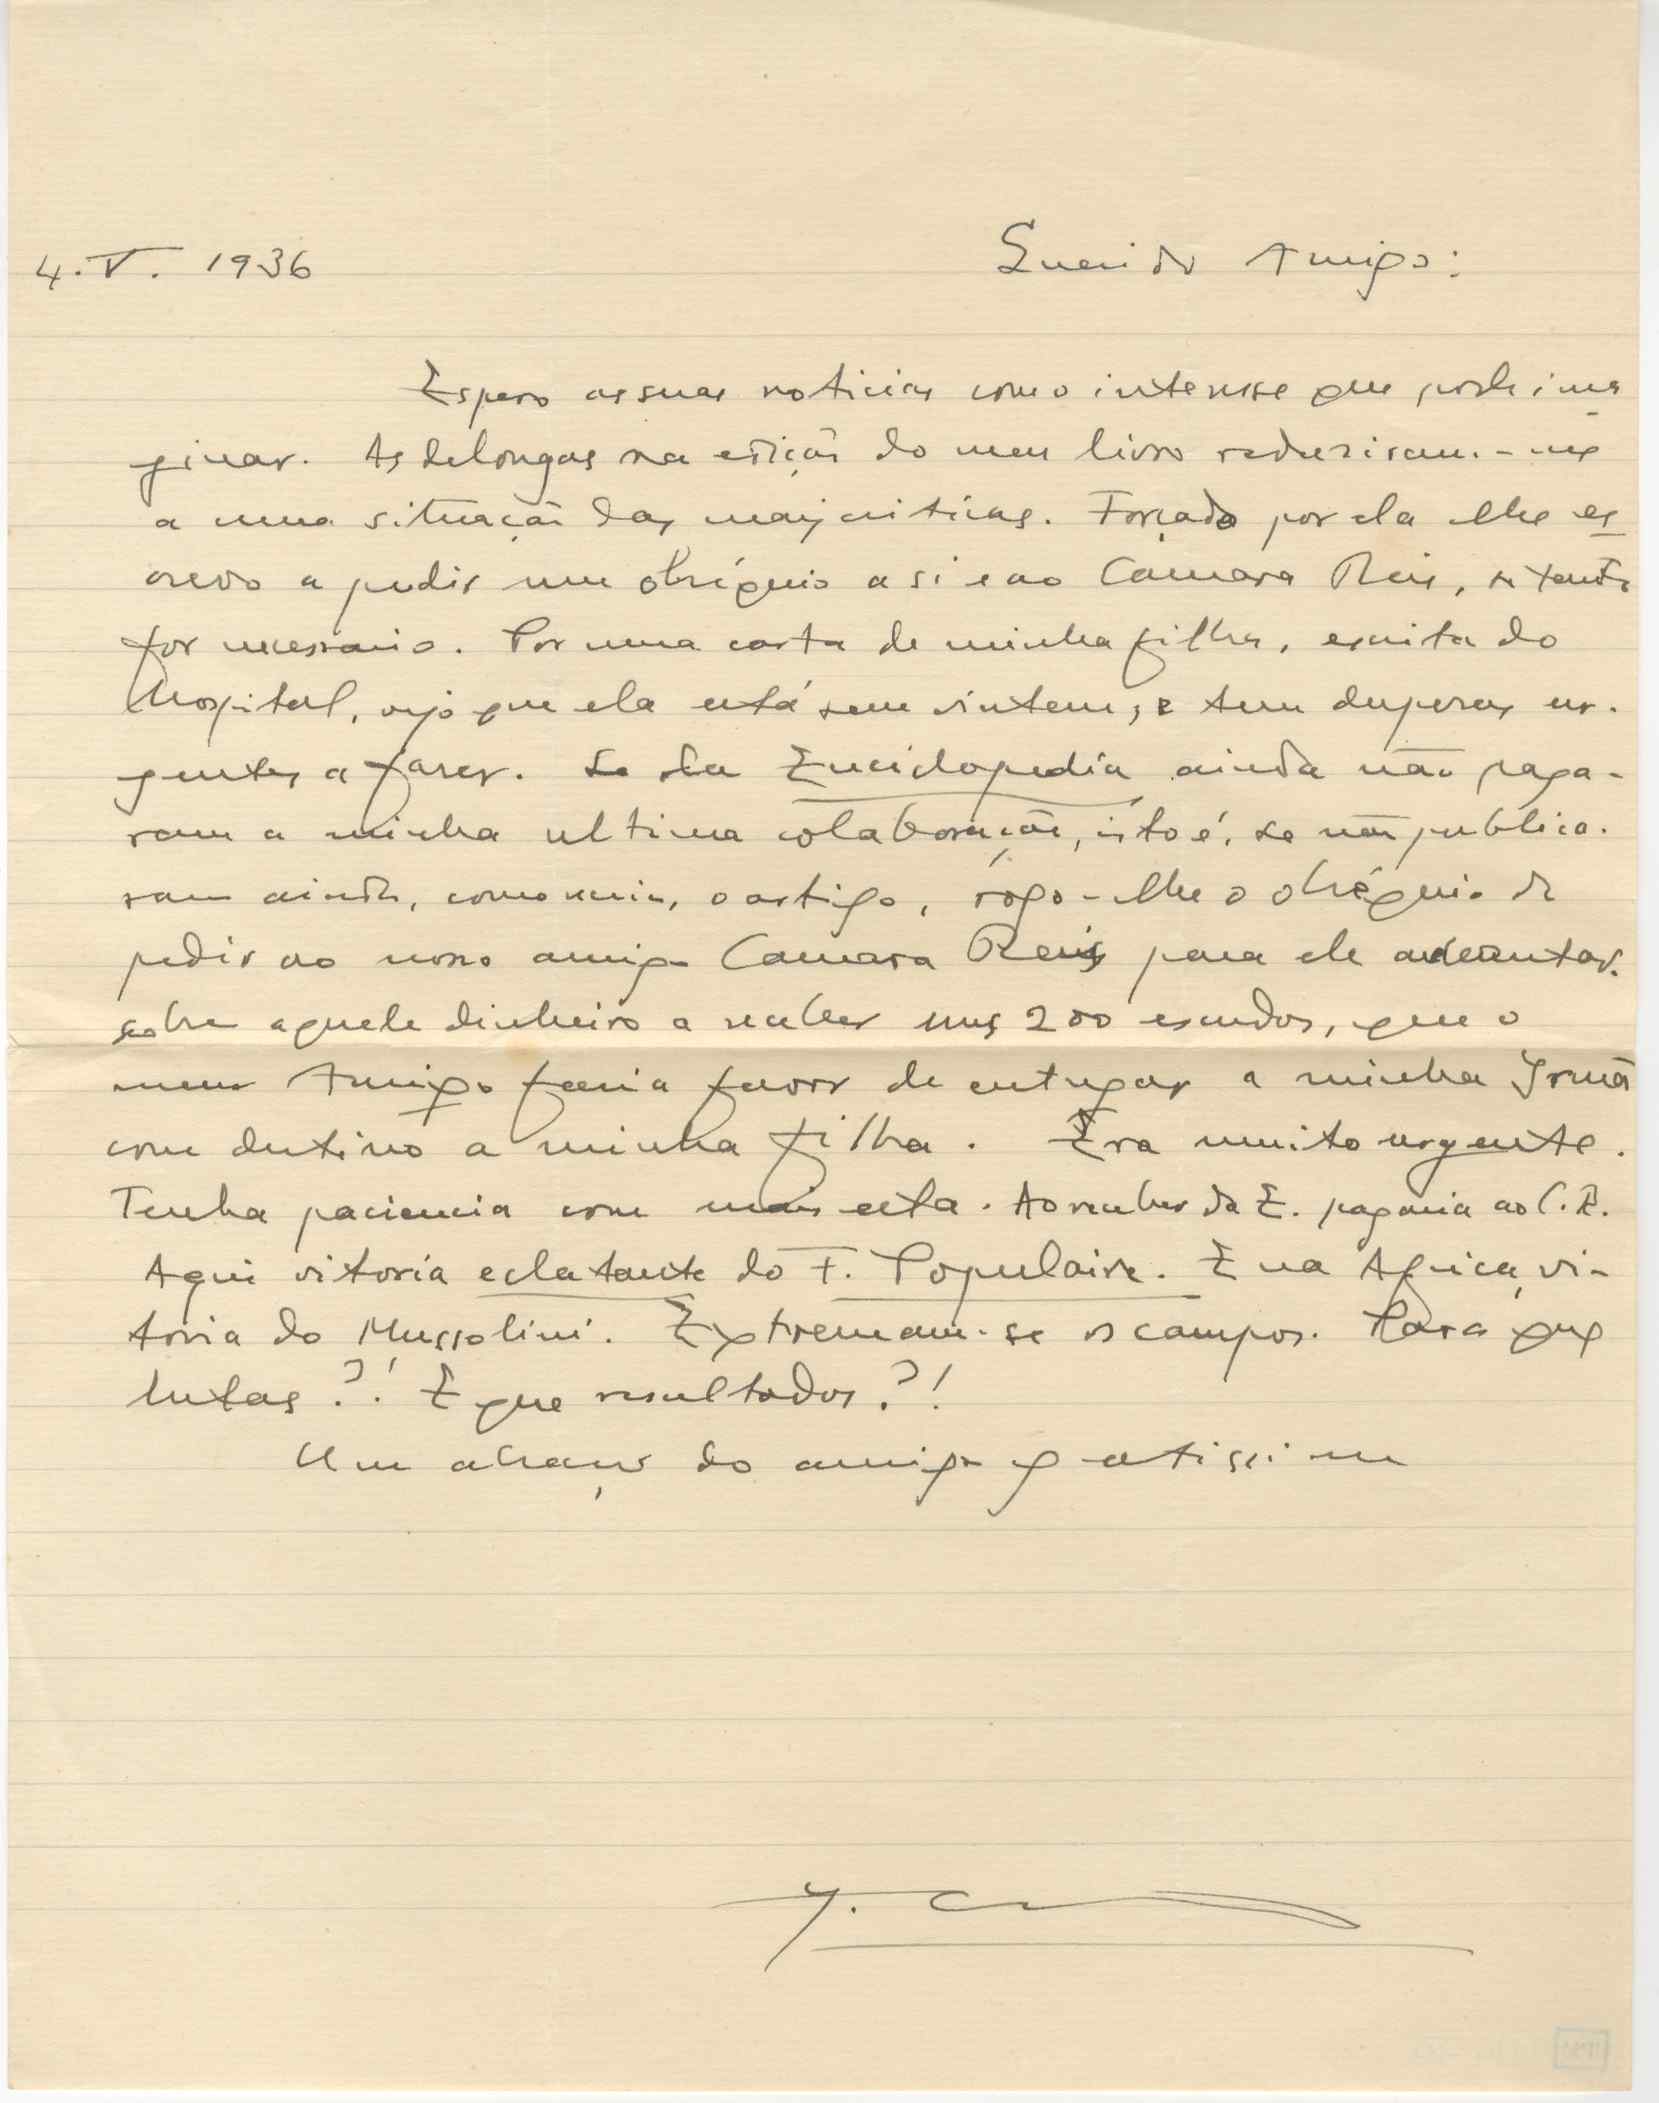 4. V. 1936
Querido Amigo:
Espero as suas noticias com o interesse que pode ima
ginar. As delongas na edição do meu livro reduziram-me
a uma situação das mais criticas. Forçado por ela lhe es
crevo a pedir um obséquio a si e ao Camara Reis, se tanto
for necessario. Por uma carta de minha filha, escrita do
hospital, vejo que ela está sem vintem, e tem despesas ur-
gentes a fazer. Se da Enciclopedia ainda não paga-
ram a minha ultima colaboração, isto é, se não publica-
ram ainda, como creio, o artigo, rogo-lhe o obséquio de
pedir ao nosso amigo Camara Reis para ele adeantar,
sobre aquele dinheiro a receber uns 200 escudos, que o
meu Amigo faria favor de entregar a minha Irmã
com destino a minha filha. Era muito urgente.
Tenha paciencia com mais esta. Ao receber da E. pagaria ao C. R.
Aqui vitoria eclatante do F. Populaire. E na Africa, vi-
toria do Mussolini. Extremam-se os campos. Para que
lutas?! E que resultados?!
Um abraço do amigo gratissimo